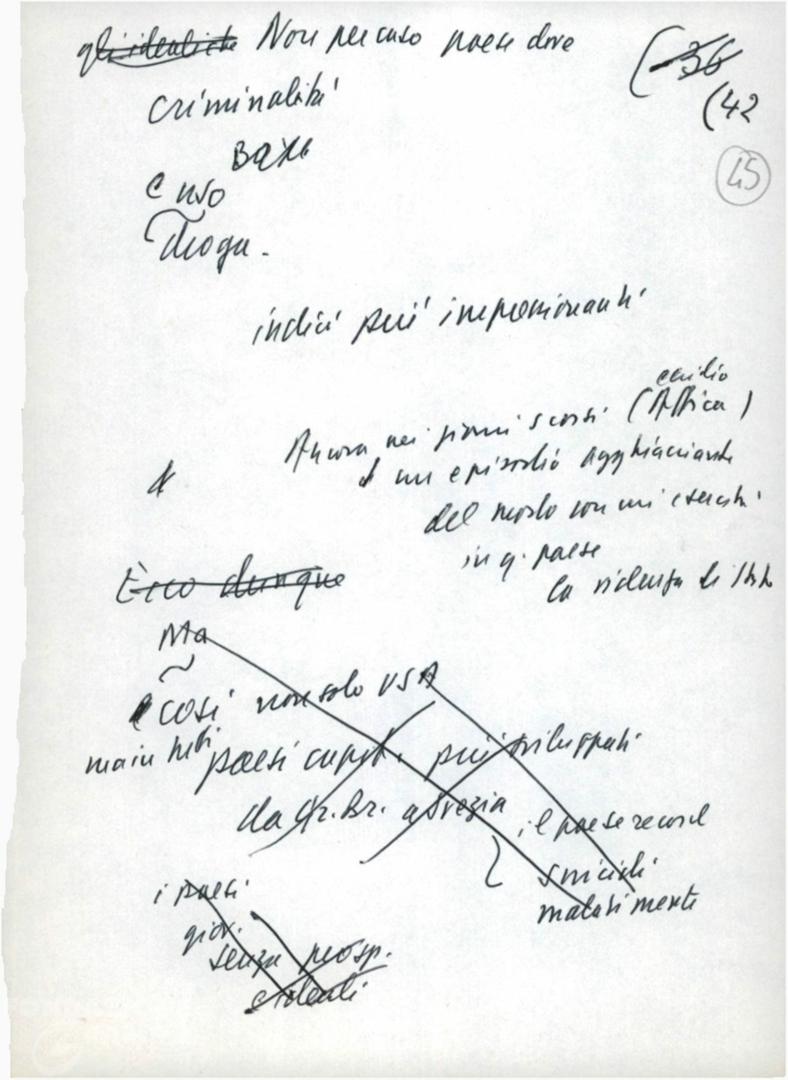 gli idealisti Non per caso paese dove
(36
(42
45
criminalità
e uso
Droga.
indici più impressionanti
eccidio
Ancora nei giorni scorsi (Attica)
un episodio agghiacciante
del modo con cui esercita
in q. paese
la violenza di Stato
Ecco dunque
Ma
così non solo USA
ma in tutti
paesi capit. più sviluppati
da Gr. Br. a Svezia
il paese record
suicidi
malati mente
i paesi
giov.
senza prosp.